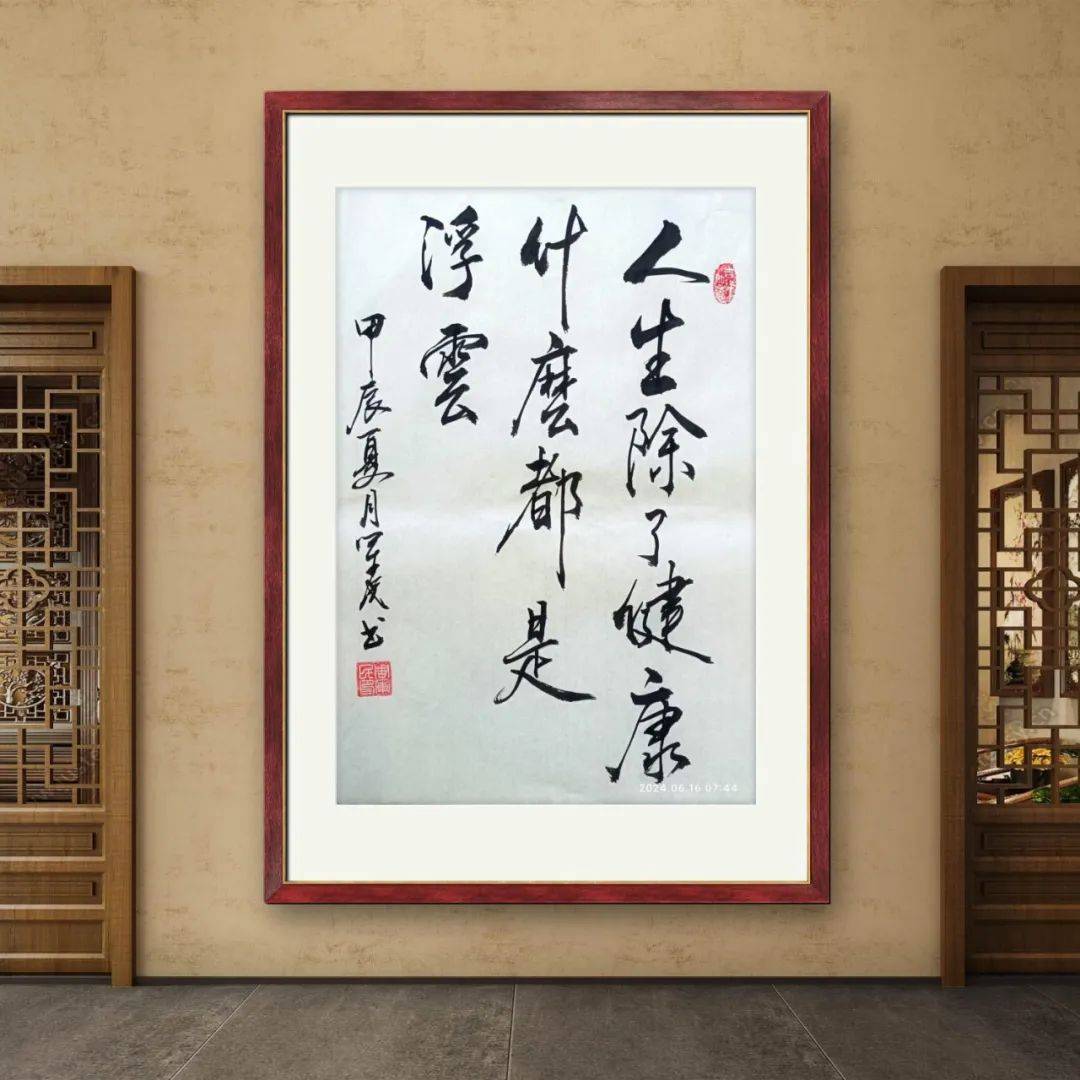 人生除了健康
什麽都是
浮雲
甲辰夏月军民书
2024.06.16 07:44